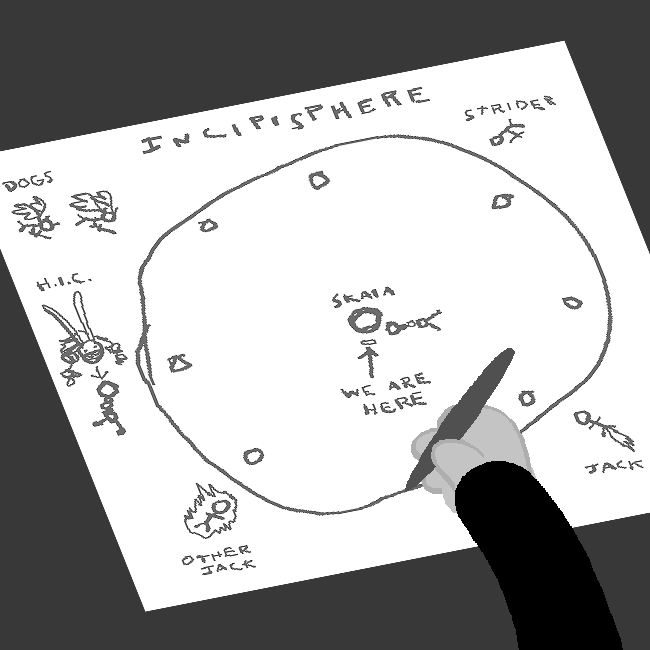 INCIPISPHERE
STRIDER
DOGS
H.I.C.
SKAIA
WE ARE
HERE
JACK
OTHER
JACK